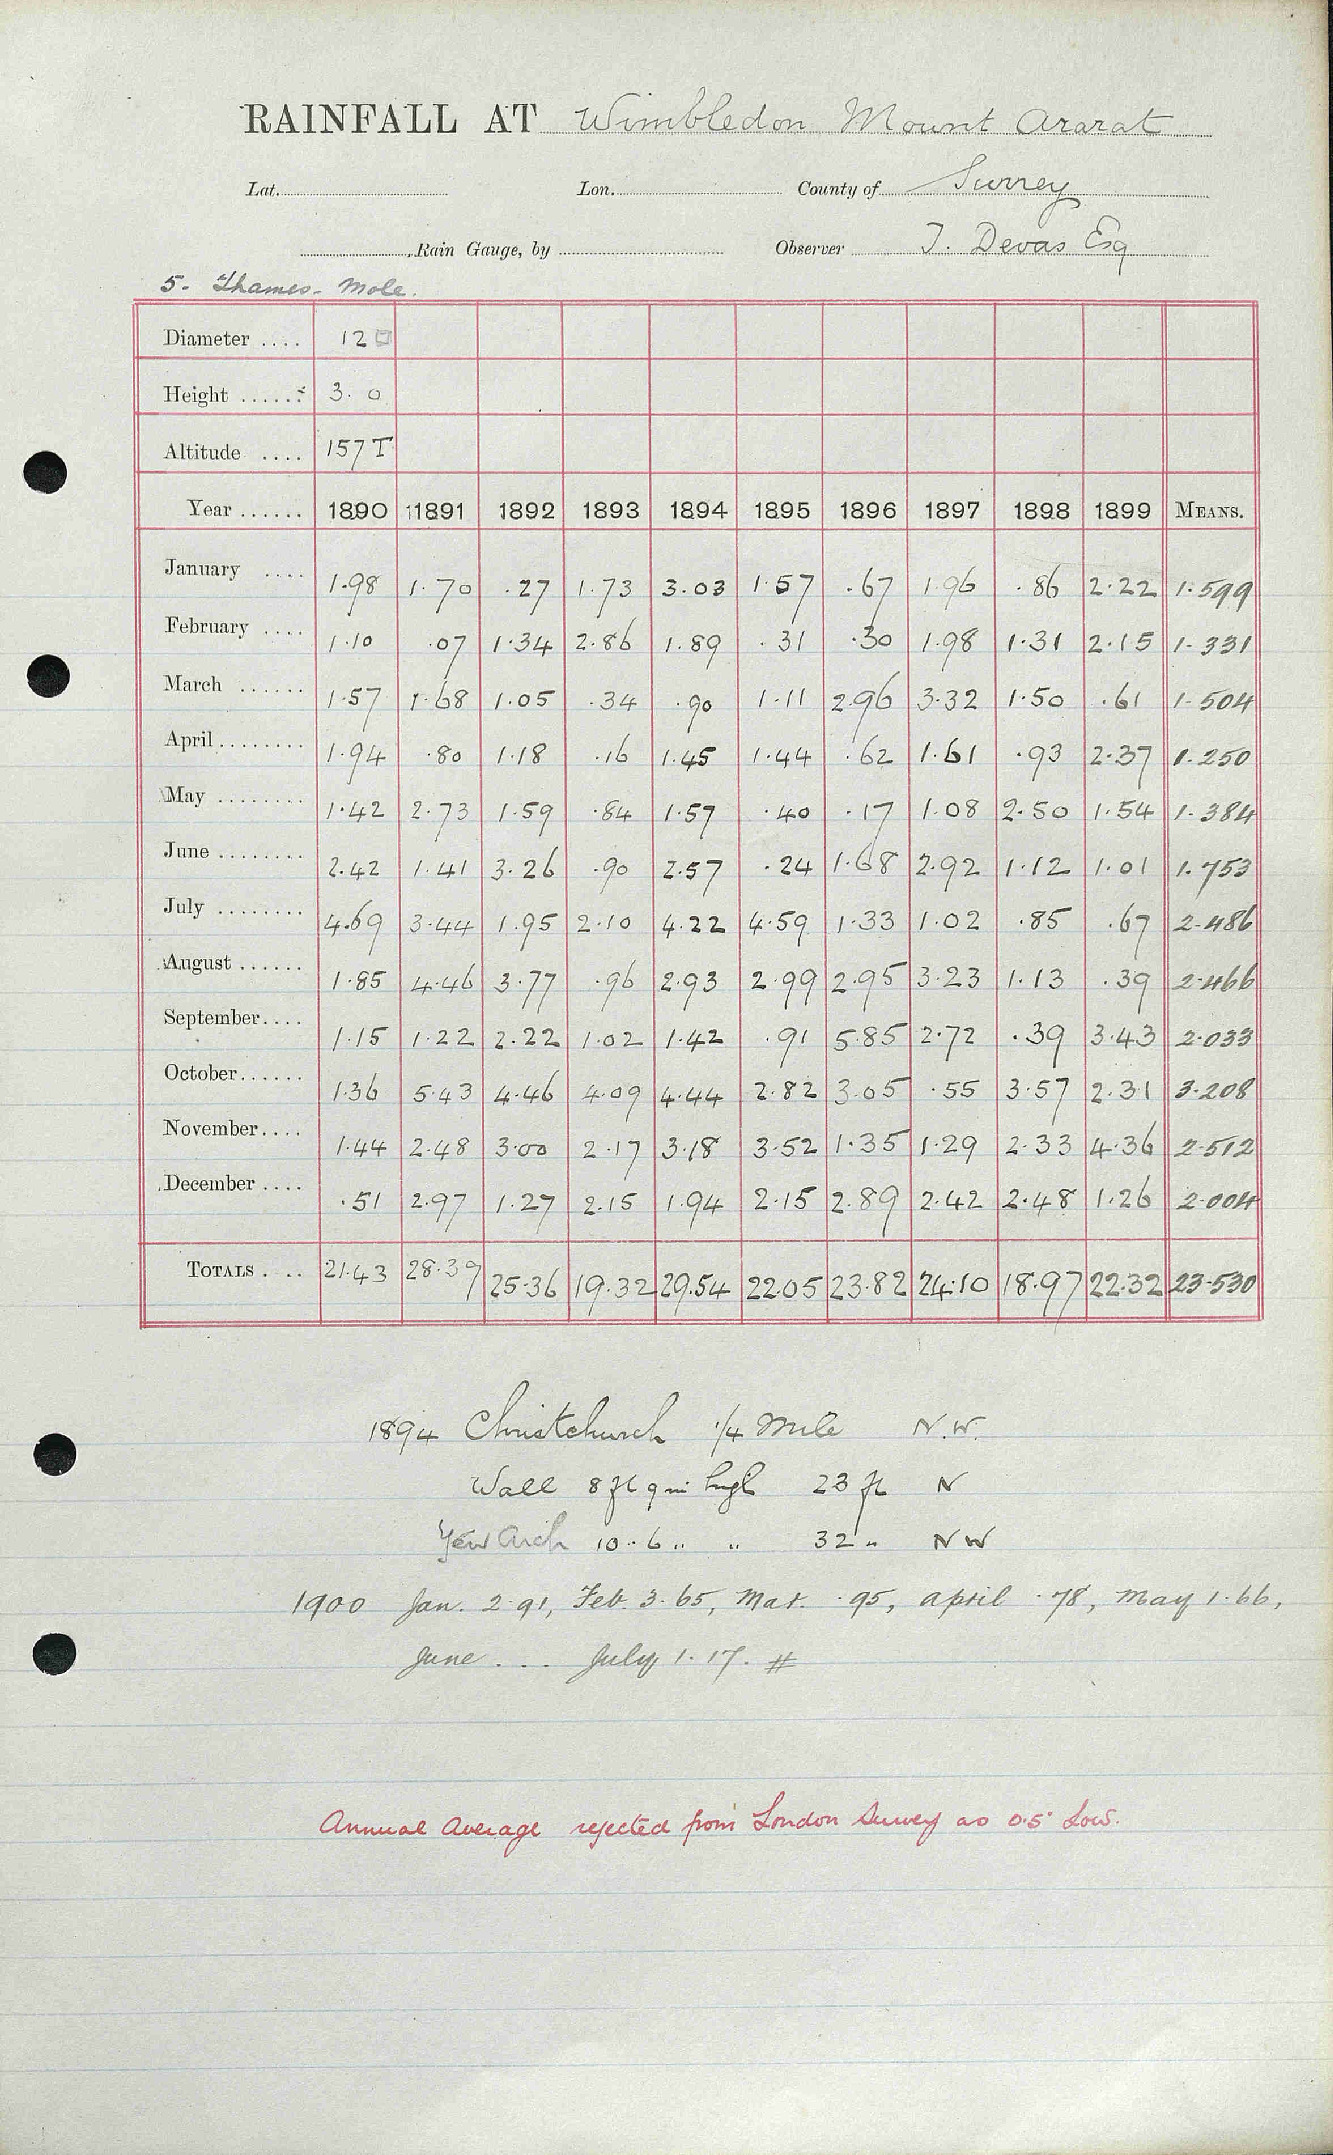 RAINFALL AT Wimbledon Mount Ararat
Lat. Lon. County of Surrey
Rain Gauge, by Observer J. Devas Esq
5. Thames - Mole.
Diameter .... 12 □
Height ...... 3. 0
Altitude .... 157 T
Year ...... 1890 1891 1892 1893 1894 1895 1896 1897 1898 1899 MEANS.
January .... 1.98 1.70 .27 1.73 3.03 1.57 .67 1.96 .86 2.22 1.599
February .... 1.10 .07 1.34 2.86 1.89 .31 .30 1.98 1.31 2.15 1.331
March ...... 1.57 1.68 1.05 .34 .90 1.11 2.96 3.32 1.50 .61 1.504
April ........ 1.94 .80 1.18 .16 1.45 1.44 .62 1.61 .93 2.37 1.250
May ........ 1.42 2.73 1.59 .84 1.57 .40 .17 1.08 2.50 1.54 1.384
June ........ 2.42 1.41 3.26 .90 2.57 .24 1.68 2.92 1.12 1.01 1.753
July ........ 4.69 3.44 1.95 2.10 4.22 4.59 1.33 1.02 .85 .67 2.486
August ...... 1.85 4.46 3.77 .96 2.93 2.99 2.95 3.23 1.13 .39 2.466
September .... 1.15 1.22 2.22 1.02 1.42 .91 5.85 2.72 .39 3.43 2.033
October ...... 1.36 5.43 4.46 4.09 4.44 2.82 3.05 .55 3.57 2.31 3.208
November .... 1.44 2.48 3.00 2.17 3.18 3.52 1.35 1.29 2.33 4.36 2.512
December .... .51 2.97 1.27 2.15 1.94 2.15 2.89 2.42 2.48 1.26 2.004
TOTALS .... 21.43 28.39 25.36 19.32 29.54 22.05 23.82 24.10 18.97 22.32 23.530
1894 Christchurch 1/4 Mile N.W.
Wall 8 ft 9 in high 23 ft N
Yew Arch 10 .. 6 " " 32 " NW
1900 Jan. 2.91, Feb. 3.65, Mar. .95, April .78, May 1.66,
June ... July 1.17. #
Annual Average rejected from London Survey as 0.5" low.